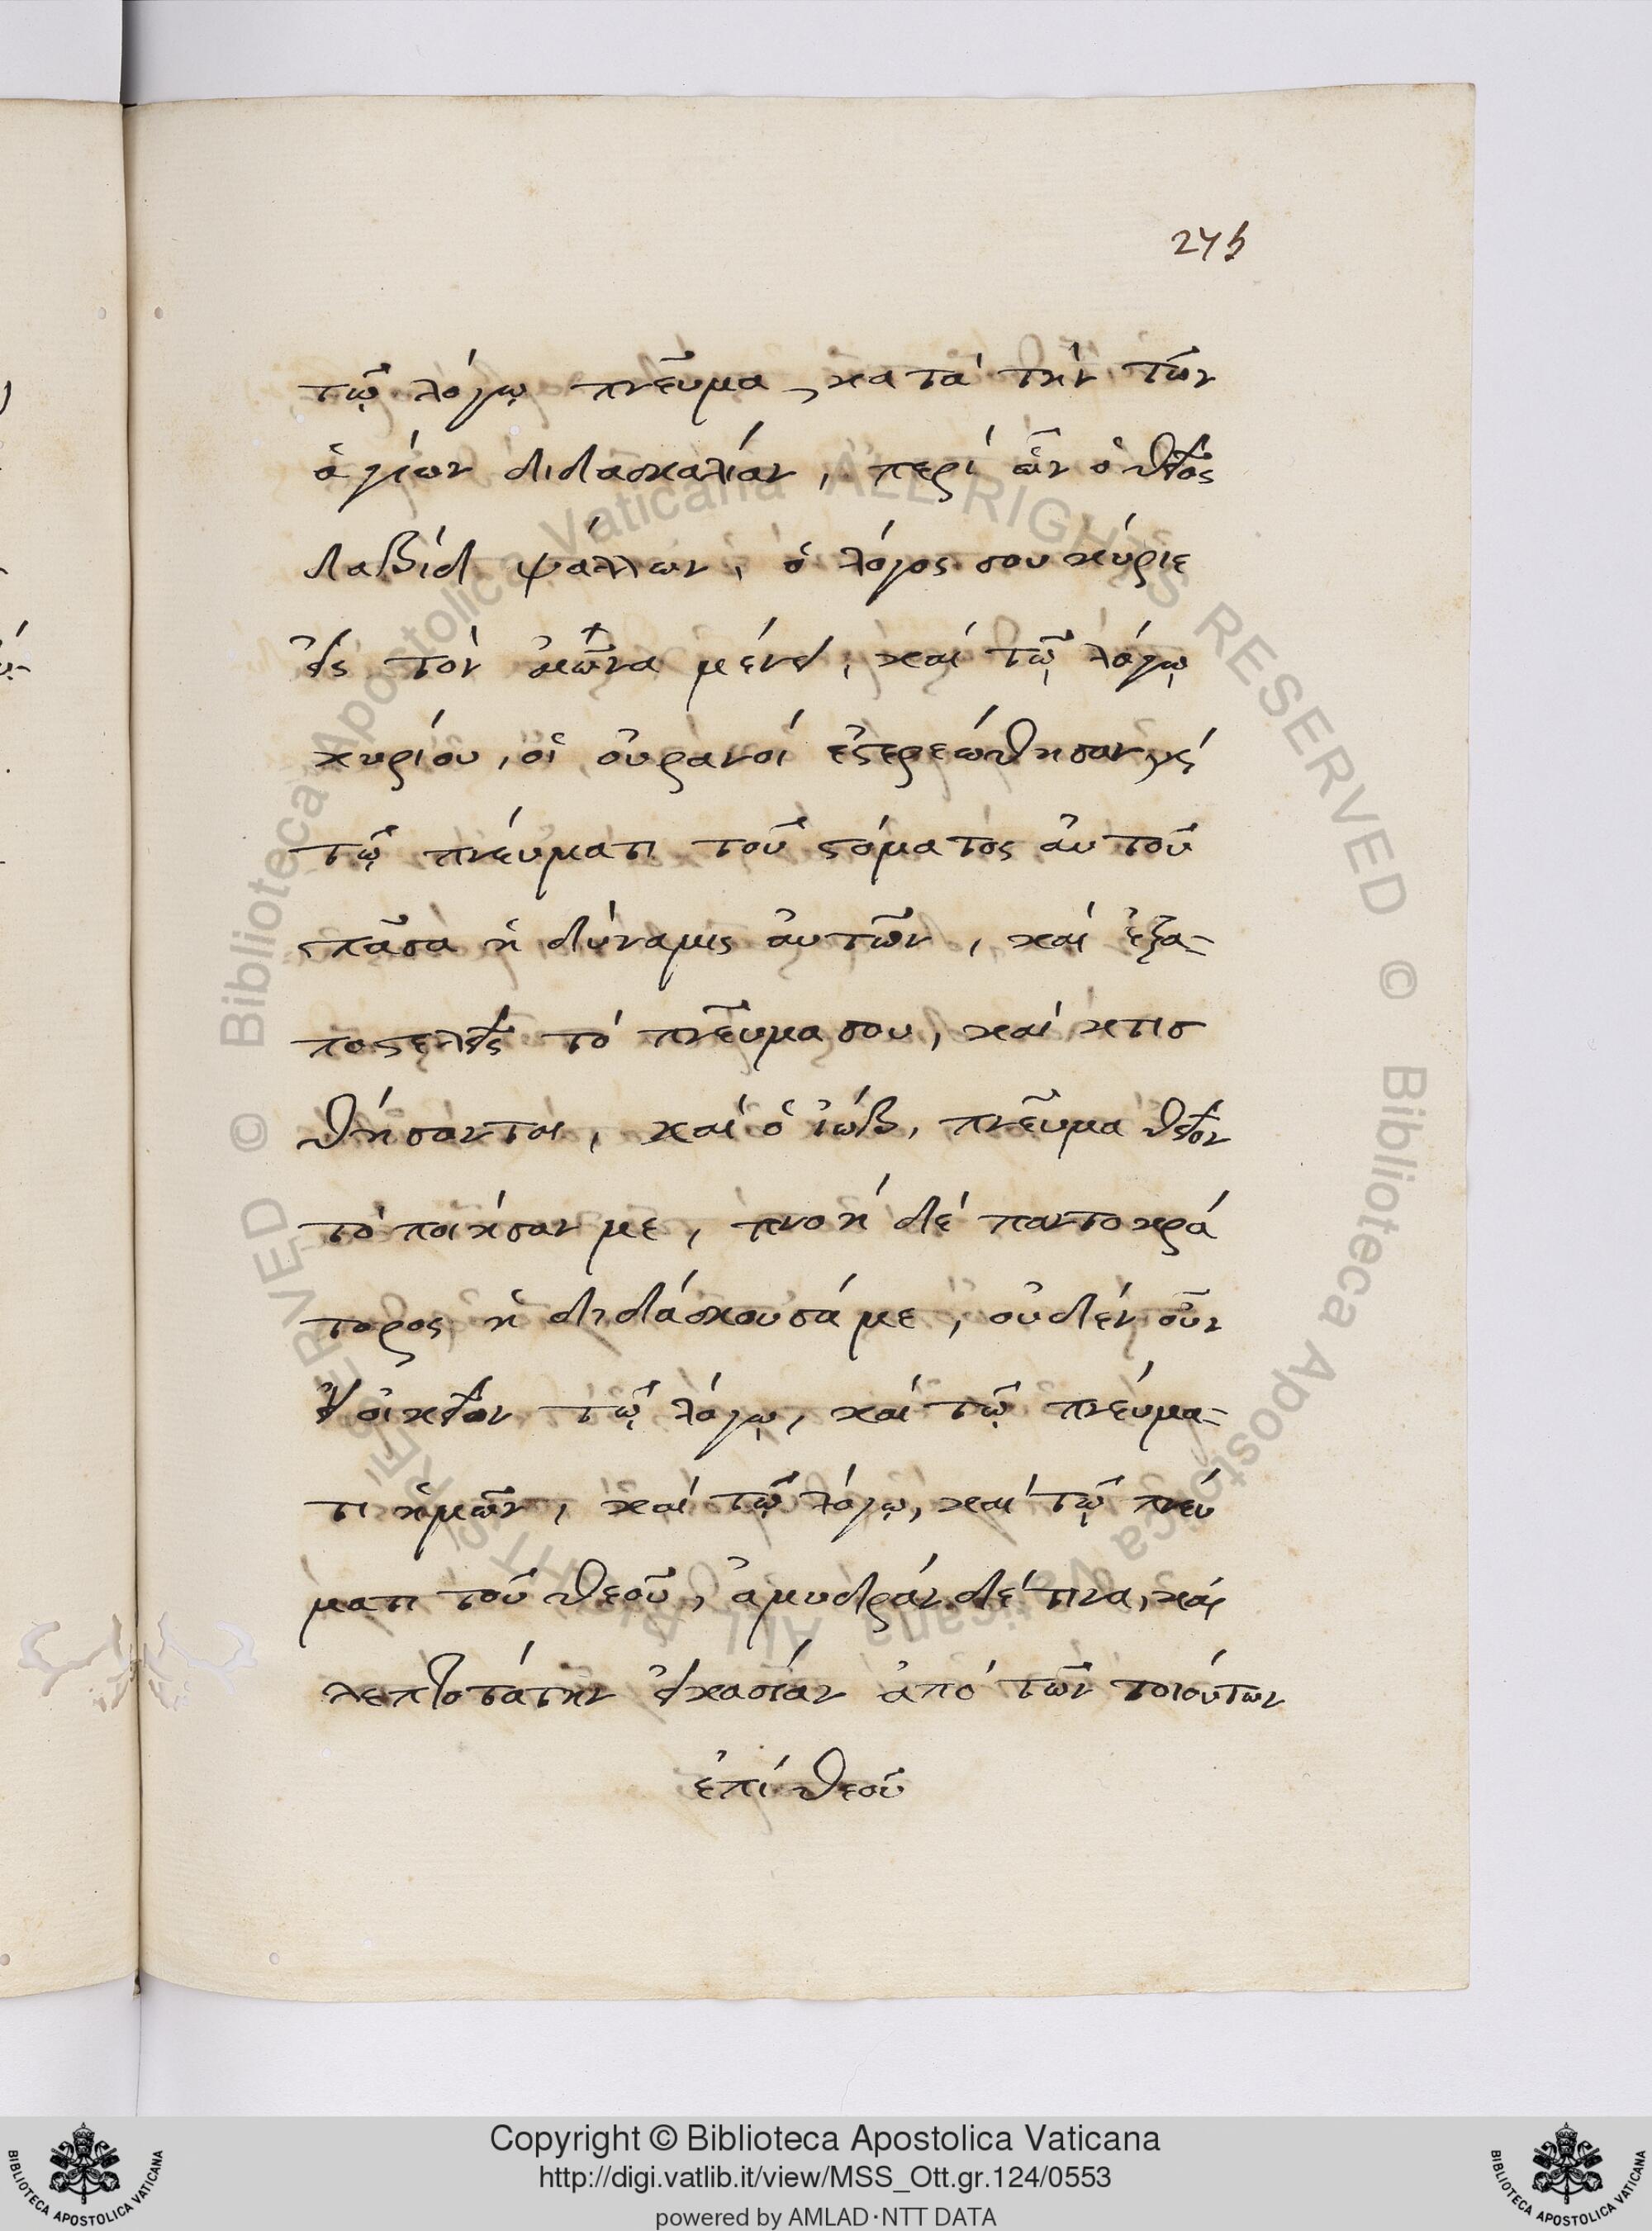 245
τῷ λόγῳ πνεῦμα, κατὰ τὴν τῶν
ἁγίων διδασκαλίαν, περὶ ὧν ὁ θεῖος
δαβὶδ ψάλλων, ὁ λόγος σου κύριε
εἰς τὸν αἰῶνα μένει, καὶ τῷ λόγῳ
κυρίου, οἱ οὐρανοὶ ἐστερεώθησαν, καὶ
τῷ πνεύματι τοῦ στόματος αὐτοῦ
πᾶσα ἡ δύναμις αὐτῶν, καὶ ἐξα-
ποστελεῖς τὸ πνεῦμα σου, καὶ κτισ
θήσονται, καὶ ὁ ἰώβ, πνεῦμα θεῖον
τὸ ποιῆσαν με, πνοὴ δὲ παντοκρά
τορος ἡ διδάσκουσά με, οὐδὲν οὖν
ἐοικεῖον τῷ λόγῳ, καὶ τῷ πνεύμα-
τι ἡμῶν, καὶ τῷ λόγῳ, καὶ τῷ πνεύ
ματι τοῦ θεοῦ, ἀμυδρὰν δέ τινα, καὶ
λεπτοτάτην εἰκασίαν ἀπὸ τῶν τοιούτων
ἐπὶ θεοῦ
© Biblioteca Apostolica Vaticana ALL RIGHTS RESERVED © Biblioteca Apostolica Vaticana ALL RIGHTS RESERVED
Copyright © Biblioteca Apostolica Vaticana
http://digi.vatlib.it/view/MSS_Ott.gr.124/0553
powered by AMLAD·NTT DATA
BIBLIOTECA APOSTOLICA VATICANA
BIBLIOTECA APOSTOLICA VATICANA